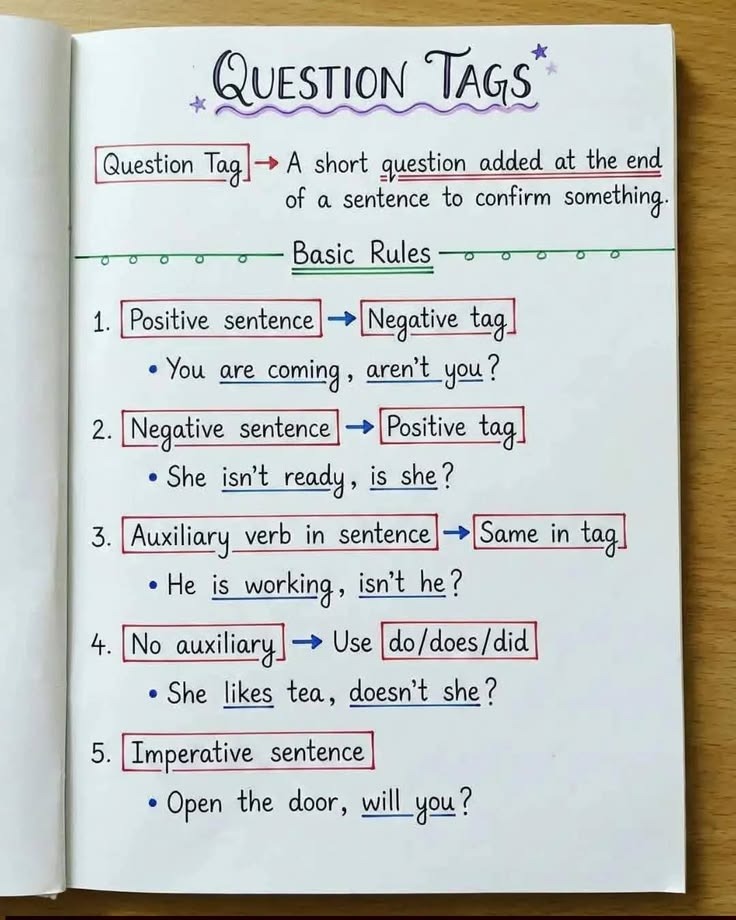 QUESTION TAGS
Question Tag → A short question added at the end
of a sentence to confirm something.
Basic Rules
1. Positive sentence → Negative tag
• You are coming, aren't you?
2. Negative sentence → Positive tag
• She isn't ready, is she?
3. Auxiliary verb in sentence → Same in tag
• He is working, isn't he?
4. No auxiliary → Use do/does/did
• She likes tea, doesn't she?
5. Imperative sentence
• Open the door, will you?